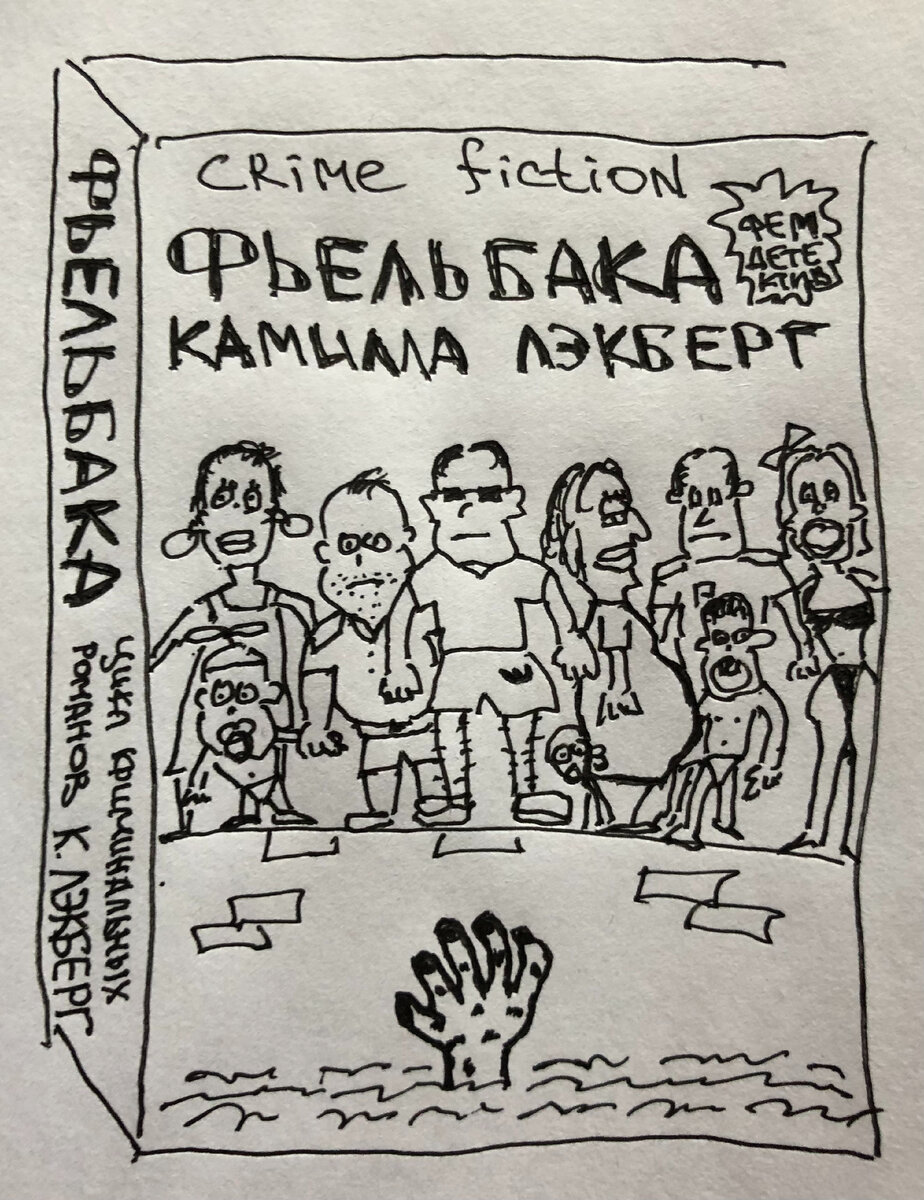 CRiMe fictioN
ФЬЕЛЬБАКА
КАМИЛЛА ЛЭКБЕРГ
ФЕМ
ДЕТЕ
КТИВ
ФЬЕЛЬБАКА
Цикл криминальных
романов К. ЛЭКБЕРГ